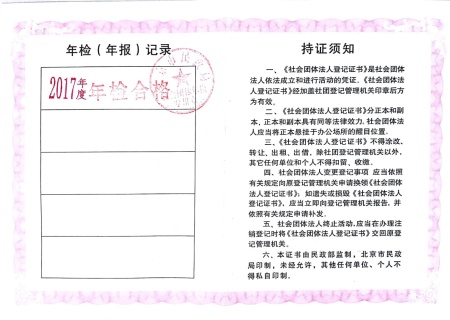 年检（年报）记录
2017年度年检合格
持证须知
一、《社会团体法人登记证书》是社会
团体法人依法成立和进行活动的凭证。《社会团体法
人登记证书》经加盖社团登记管理机关印章后方
为有效。
二、《社会团体法人登记证书》分正本和副
本，正本和副本具有同等法律效力，社会团体法
人应当将正本悬挂于办公场所的醒目位置。
三、《社会团体法人登记证书》不得涂改、
转让、出租、出借，除社团登记管理机关以外，
其它任何单位和个人不得扣留、收缴。
四、社会团体法人变更登记事项 应当依照
有关规定向原登记管理机关申请换领《社会团体法
人登记证书》；如遗失或损毁《社会团体法人
登记证书》，应当立即向登记管理机关报告，并
依照有关规定申请补发。
五、社会团体法人终止活动，应当在办理注
销登记时将《社会团体法人登记证书》交回原登
记管理机关。
六、本证书由民政部监制，北京市民政
局印制，未经允许，其他任何单位、个人不
得私自印制。